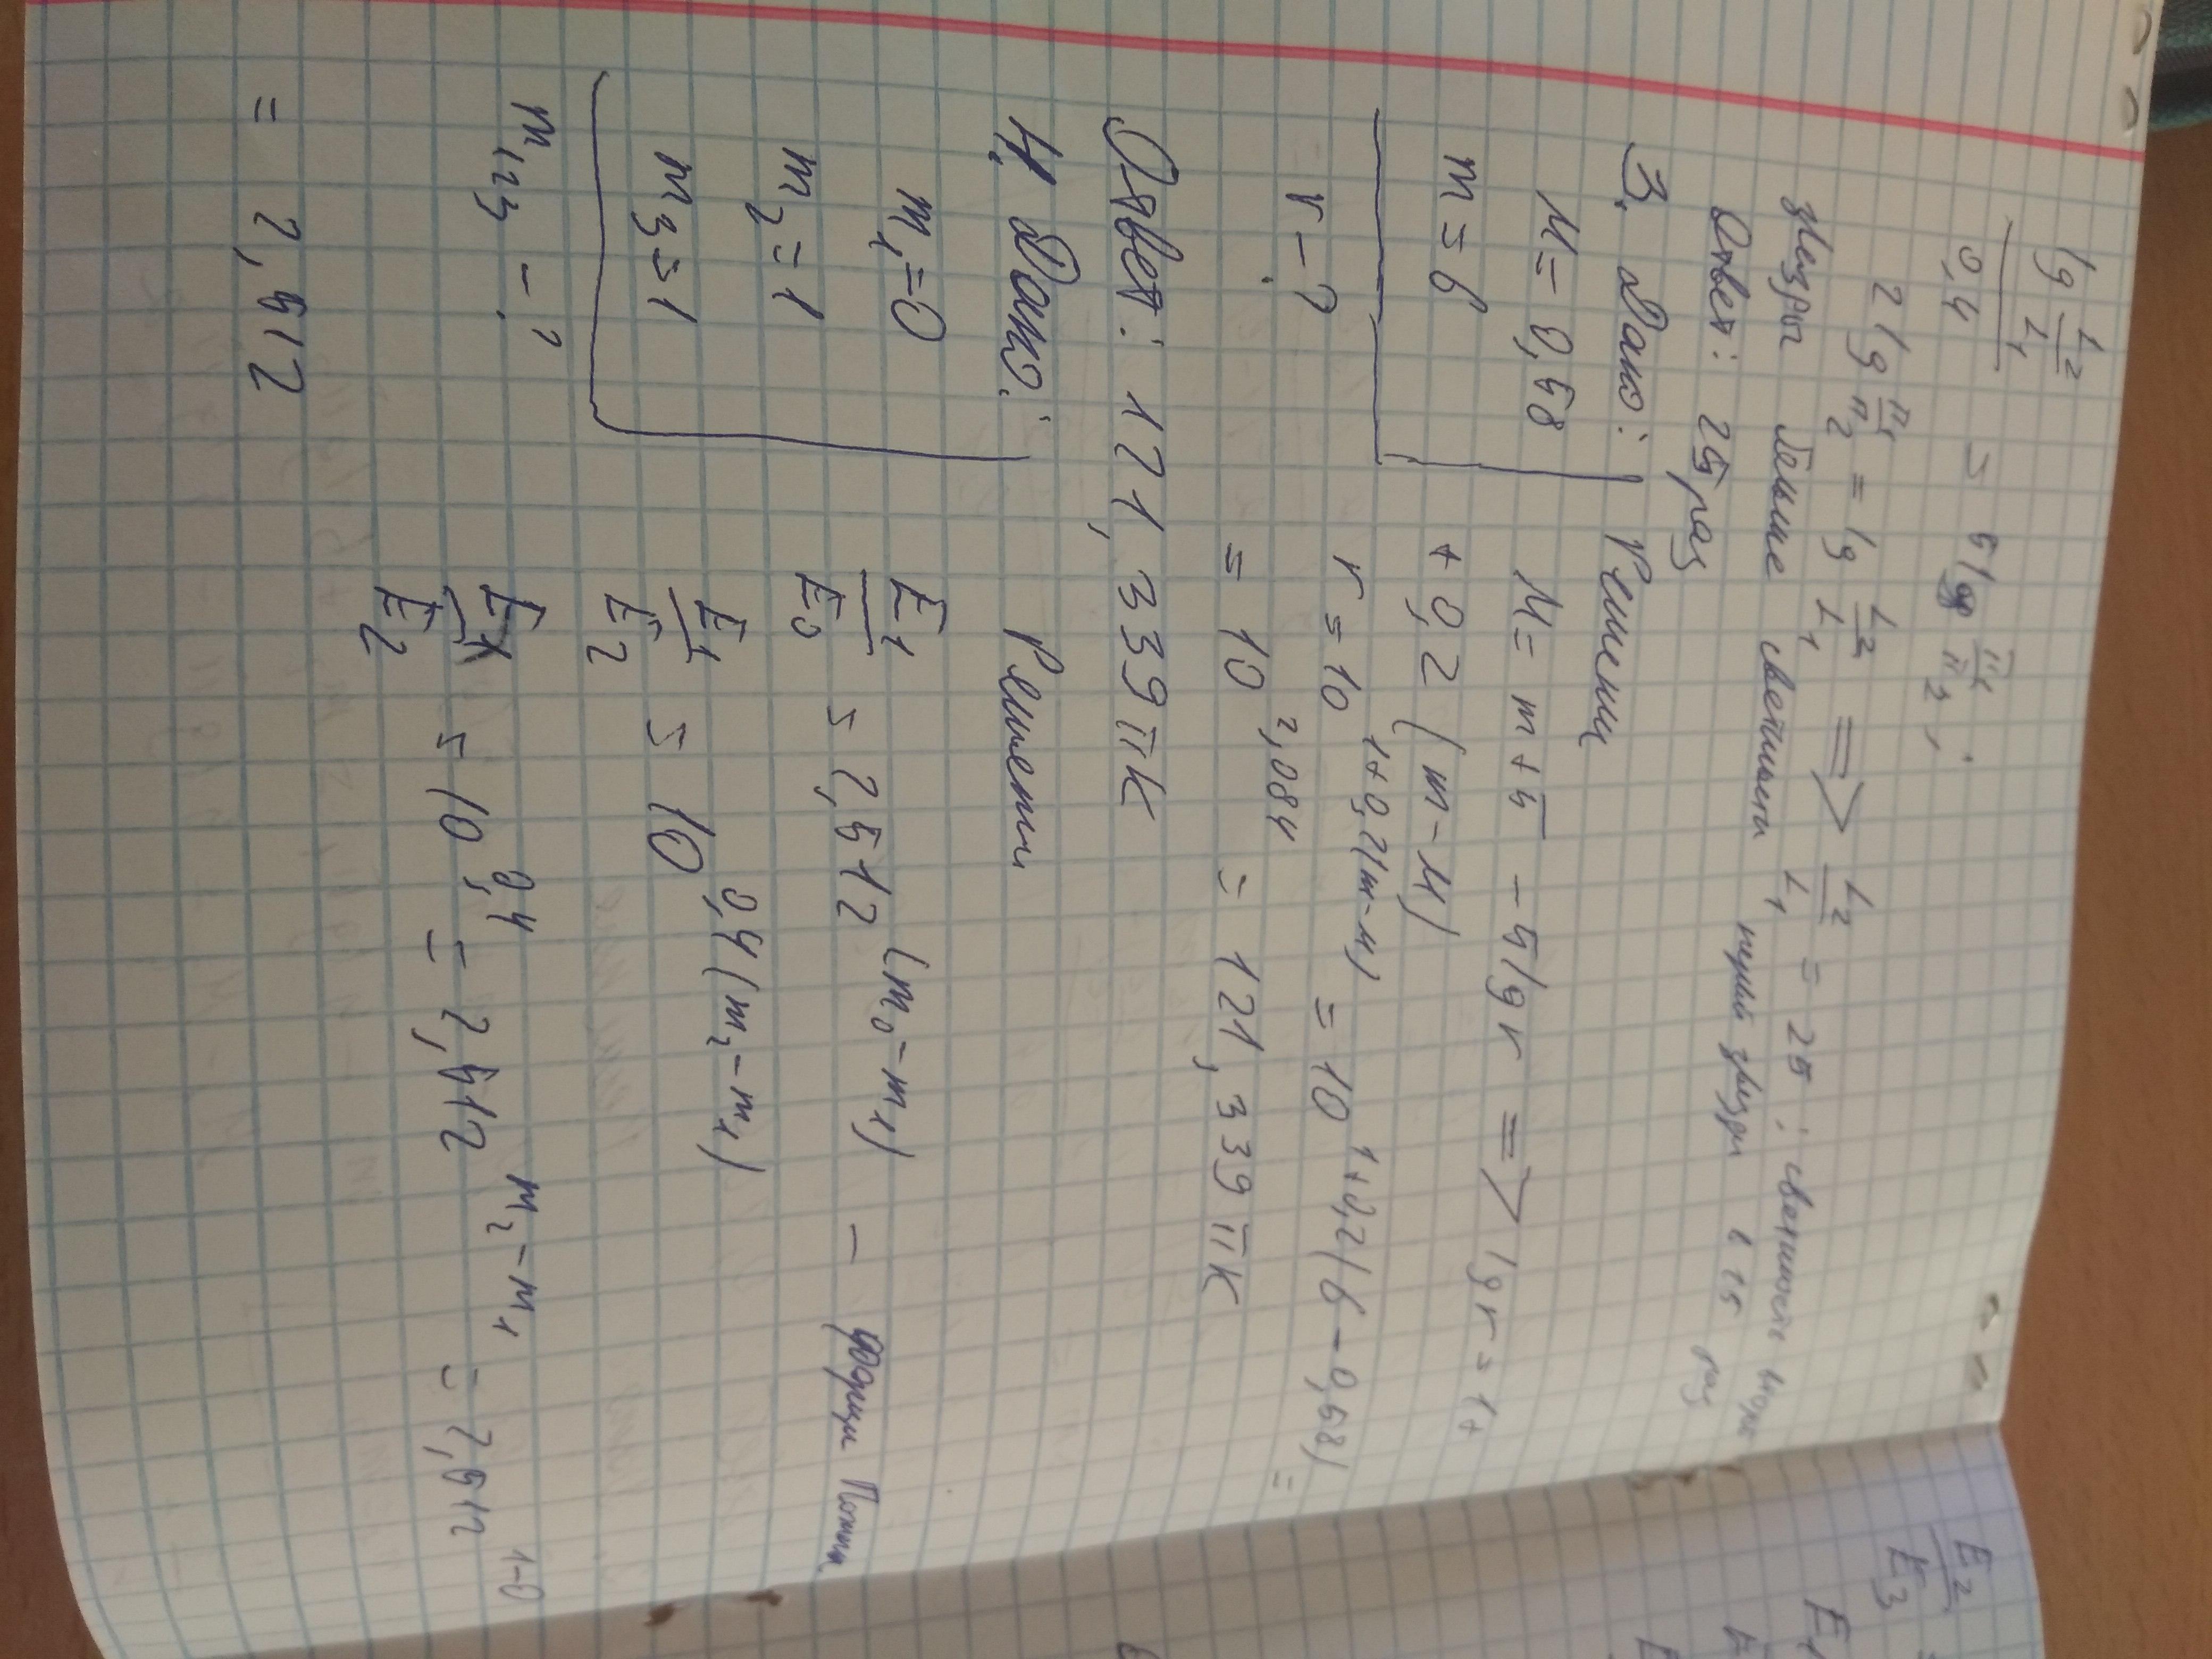 lg L₂/L₁ / 0,4 = 5 lg π₁/π₂ ;
2 lg π₁/π₂ = lg L₂/L₁ => L₂/L₁ = 25 ; светимость
звезды больше светимости первой звезды в 25 раз
Ответ: 25 раз
3. Дано:
M = 0,58
m = 6
r - ?
Решени
M = m + 5 - 5 lg r => lg r = 1 +
+ 0,2 (m - M)
r = 10^1+0,2(m-M) = 10^1+0,2(6-0,58) =
= 10^2,084 = 121,339 пк
Ответ: 121,339 пк
4. Дано:
m₁ = 0
m₂ = 1
m₃ = 1
m₁₂₃ - ?
Решени
E₁/E₀ = 2,512^(m₀ - m₁) -
E₁/E₂ = 10^0,4(m₂ - m₁)
E₁/E₂ = 10^0,4 = 2,512^m₂-m₁ = 2,512^1-0
= 2,512
E₂/E₃